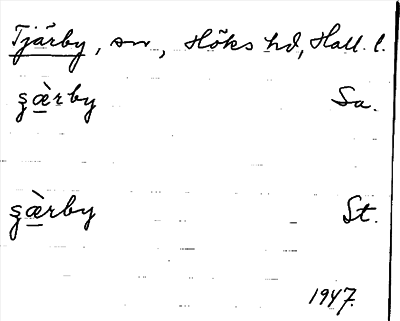 Tjärby, sn, Höks hd, Hall. l.
ʂæ̀rby Sa.
ʂæ̀rby St.
1947.